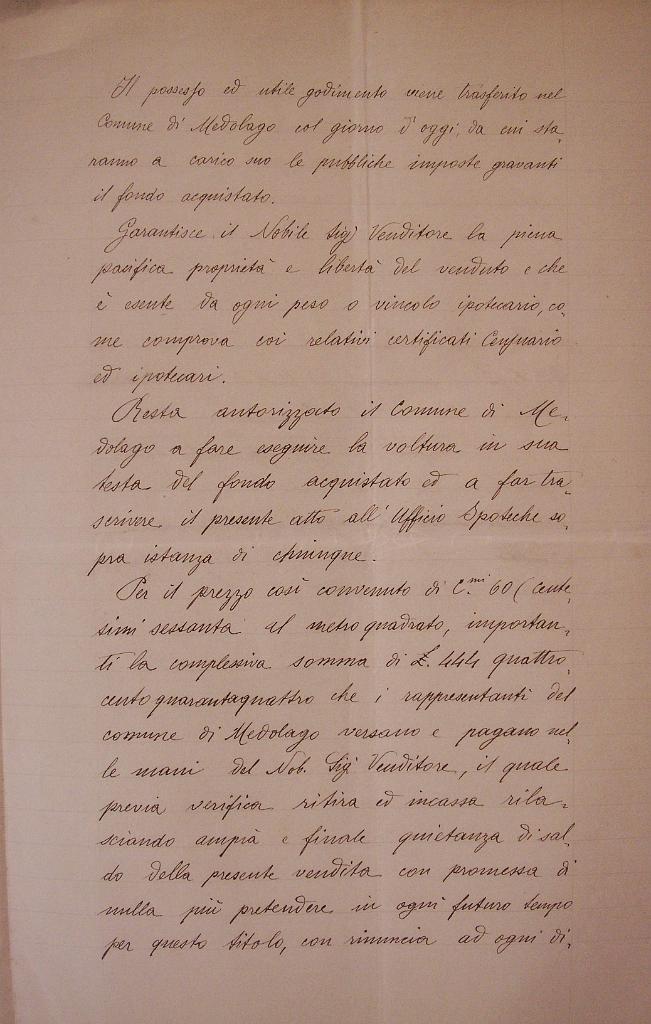 Il possesso ed utile godimento viene trasferito nel
Comune di Medolago col giorno d'oggi, da cui sta-
ranno a carico suo le pubbliche imposte gravanti
il fondo acquistato.
Garantisce il Nobile Sig.r Venditore la piena
pacifica proprietà e libertà del venduto e che
è esente da ogni peso o vincolo ipotecario, co-
me comprova coi relativi certificati Censuario
ed ipotecari.
Resta autorizzato il Comune di Me-
dolago a fare eseguire la voltura in sua
testa del fondo acquistato ed a far tra-
scrivere il presente atto all'Ufficio Ipoteche so-
pra istanza di chiunque.
Per il prezzo così convenuto di C.mi 60 (cente-
simi sessanta al metro quadrato, importan-
ti la complessiva somma di £. 444 quattro-
centoquarantaquattro che i rappresentanti del
comune di Medolago versano e pagano nel-
le mani del Nob. Sig.r Venditore, il quale
previa verifica ritira ed incassa rila-
sciando ampia e finale quietanza di sal-
do della presente vendita con promessa di
nulla più pretendere in ogni futuro tempo
per questo titolo, con rinuncia ad ogni di-